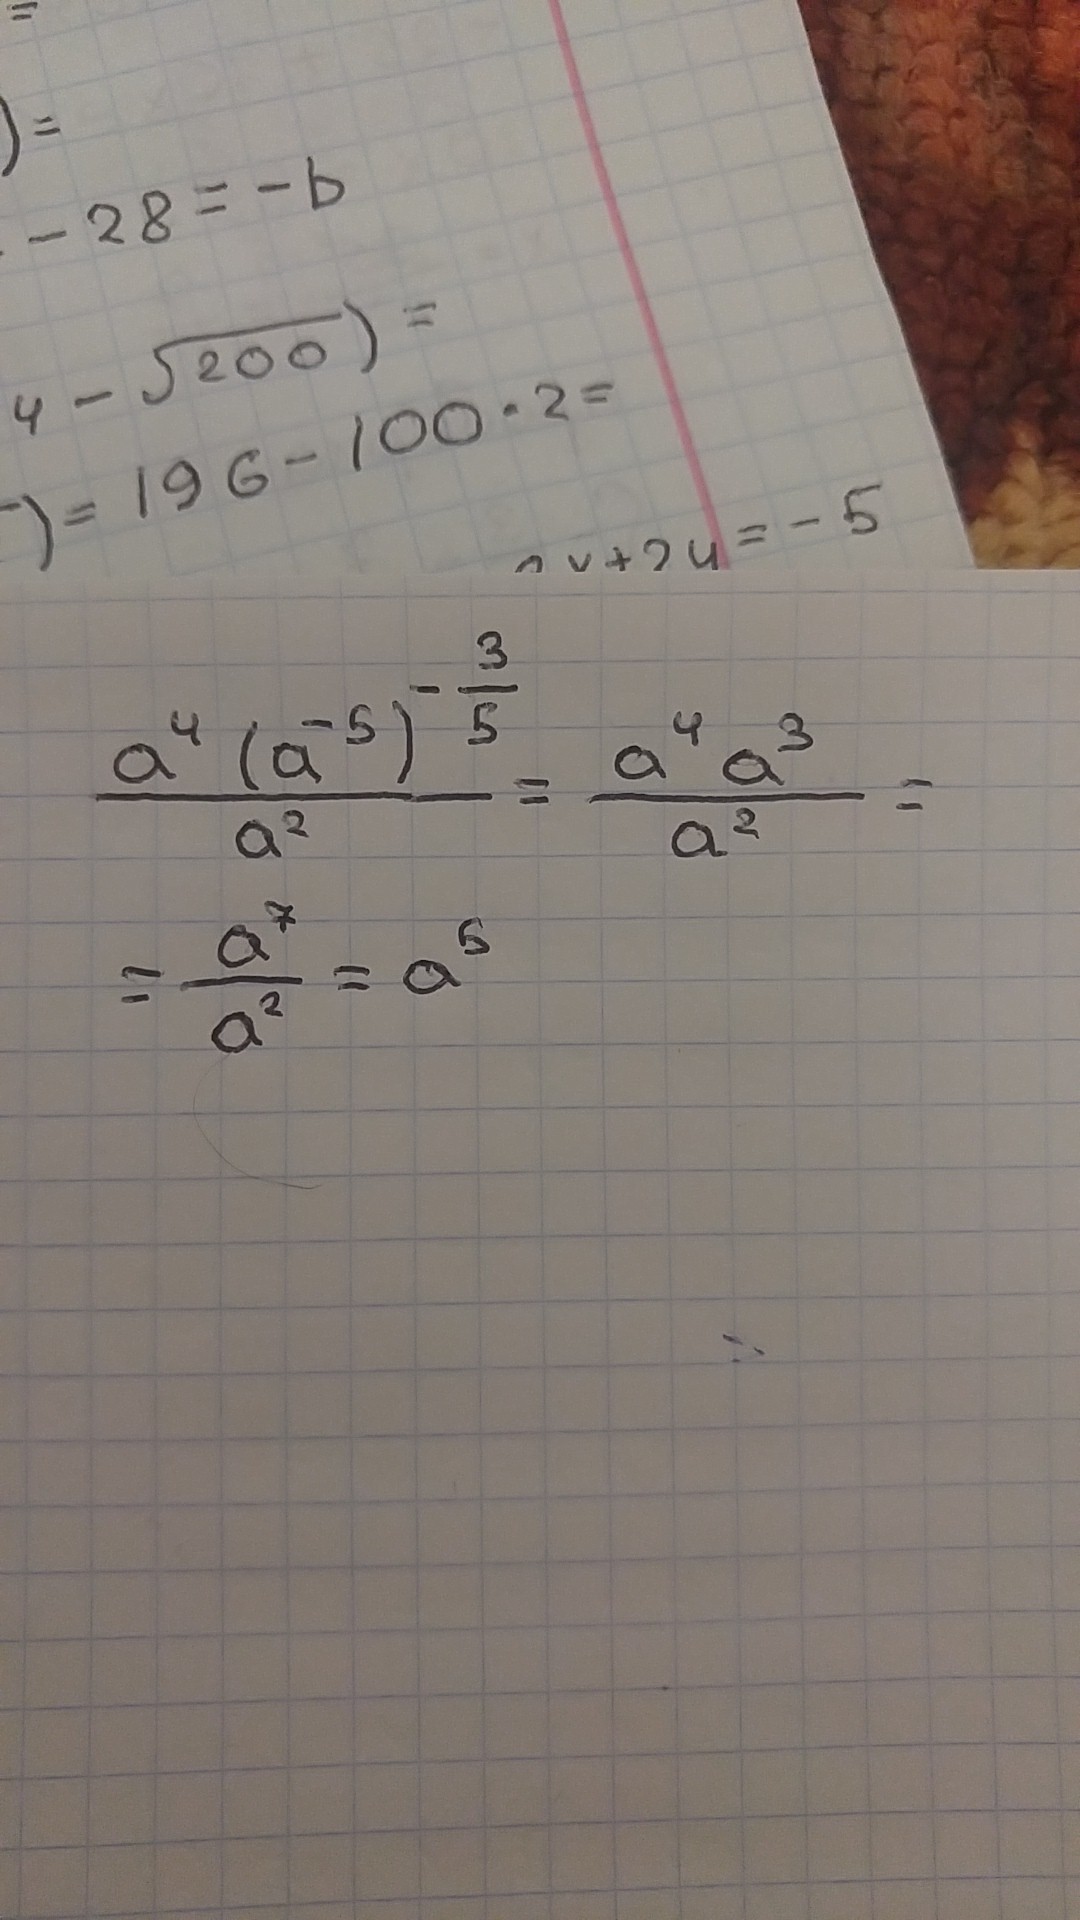 =
) =
- 28 = - b
4 - √200 ) =
) = 196 - 100 · 2 =
x + 2y = - 5
a⁴ (a⁻⁵)^(-3/5) / a² = a⁴ a³ / a² =
= a⁷ / a² = a⁵